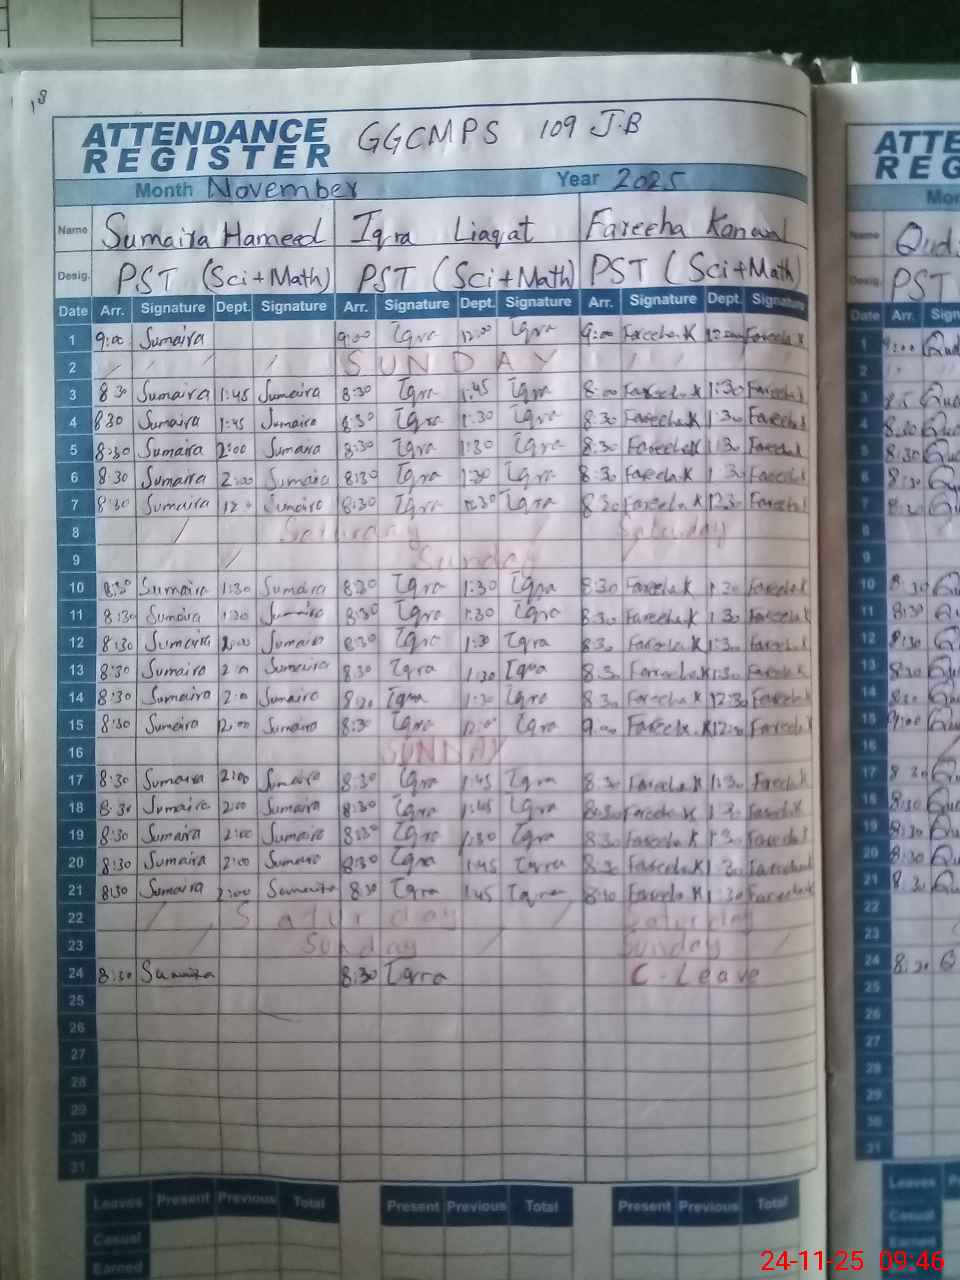 18
ATTENDANCE REGISTER GGCMPS 109 J.B
Month November Year 2025
Name Sumaira Hameed Iqra Liaqat Fareeha Kanwal
Desig. PST (Sci+Math) PST (Sci+Math) PST (Sci+Math)
Date Arr. Signature Dept. Signature Arr. Signature Dept. Signature Arr. Signature Dept. Signature
1 9:00 Sumaira 9:00 Iqra 12:00 Iqra 9:00 Fareeha.K 12:00 Fareeha.K
2 SUNDAY
3 8:30 Sumaira 1:45 Sumaira 8:30 Iqra 1:45 Iqra 8:00 Fareeha.K 1:30 Fareeha.K
4 8:30 Sumaira 1:45 Sumaira 8:30 Iqra 1:30 Iqra 8:30 Fareeha.K 1:30 Fareeha.K
5 8:30 Sumaira 2:00 Sumaira 8:30 Iqra 1:30 Iqra 8:30 Fareeha.K 1:30 Fareeha.K
6 8:30 Sumaira 2:00 Sumaira 8:30 Iqra 1:30 Iqra 8:30 Fareeha.K 1:30 Fareeha.K
7 8:30 Sumaira Sumaira 8:30 Iqra 12:30 Iqra 8:30 Fareeha.K 12:30 Fareeha.K
8 Saturday Saturday
9 Sunday
10 8:30 Sumaira 1:30 Sumaira 8:30 Iqra 1:30 Iqra 8:30 Fareeha.K 1:30 Fareeha.K
11 8:30 Sumaira 1:30 Sumaira 8:30 Iqra 1:30 Iqra 8:30 Fareeha.K 1:30 Fareeha.K
12 8:30 Sumaira 2:00 Sumaira 8:30 Iqra 1:30 Iqra 8:30 Fareeha.K 1:30 Fareeha.K
13 8:30 Sumaira 2:00 Sumaira 8:30 Iqra 1:30 Iqra 8:30 Fareeha.K 1:30 Fareeha.K
14 8:30 Sumaira 2:00 Sumaira 8:30 Iqra 1:30 Iqra 8:30 Fareeha.K 12:30 Fareeha.K
15 8:30 Sumaira 12:00 Sumaira 8:30 Iqra 12:00 Iqra 9:00 Fareeha.K 12:00 Fareeha.K
16 SUNDAY
17 8:30 Sumaira 2:00 Sumaira 8:30 Iqra 1:45 Iqra 8:30 Fareeha.K 1:30 Fareeha.K
18 8:30 Sumaira 2:00 Sumaira 8:30 Iqra 1:45 Iqra 8:30 Fareeha.K 1:30 Fareeha.K
19 8:30 Sumaira 2:00 Sumaira 8:30 Iqra 1:30 Iqra 8:30 Fareeha.K 1:30 Fareeha.K
20 8:30 Sumaira 2:00 Sumaira 8:30 Iqra 1:45 Iqra 8:30 Fareeha.K 1:30 Fareeha.K
21 8:30 Sumaira 2:00 Sumaira 8:30 Iqra 1:45 Iqra 8:30 Fareeha.K 1:30 Fareeha.K
22 Saturday Saturday
23 Sunday Sunday
24 8:30 Sumaira 8:30 Iqra C-Leave
25
26
27
28
29
30
31
Leaves Present Previous Total Present Previous Total Present Previous Total
Casual
Earned
24-11-25 09:46